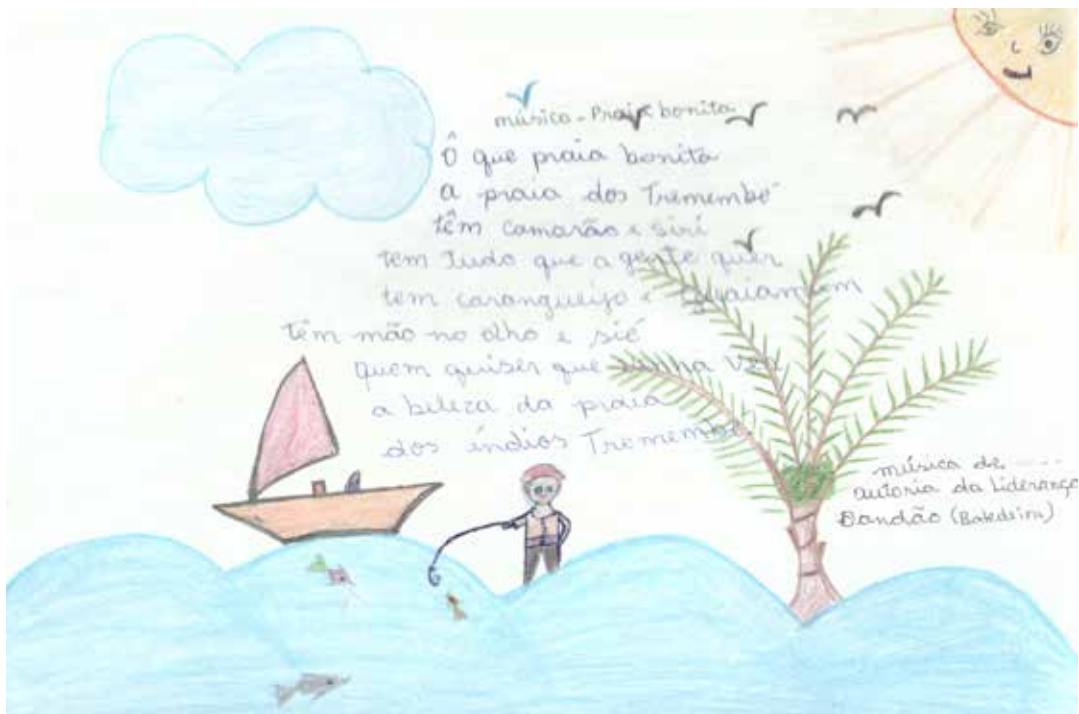 música - Praia bonita
Ô que praia bonita
a praia dos Tremembé
têm camarão e siri
tem tudo que a gente quer
tem caranguejo e guaiamum
têm mão no olho e sié
quem quiser que venha ver
a beleza da praia
dos índios Tremembé
música de
autoria da Liderança
Dandão (Batedeira)